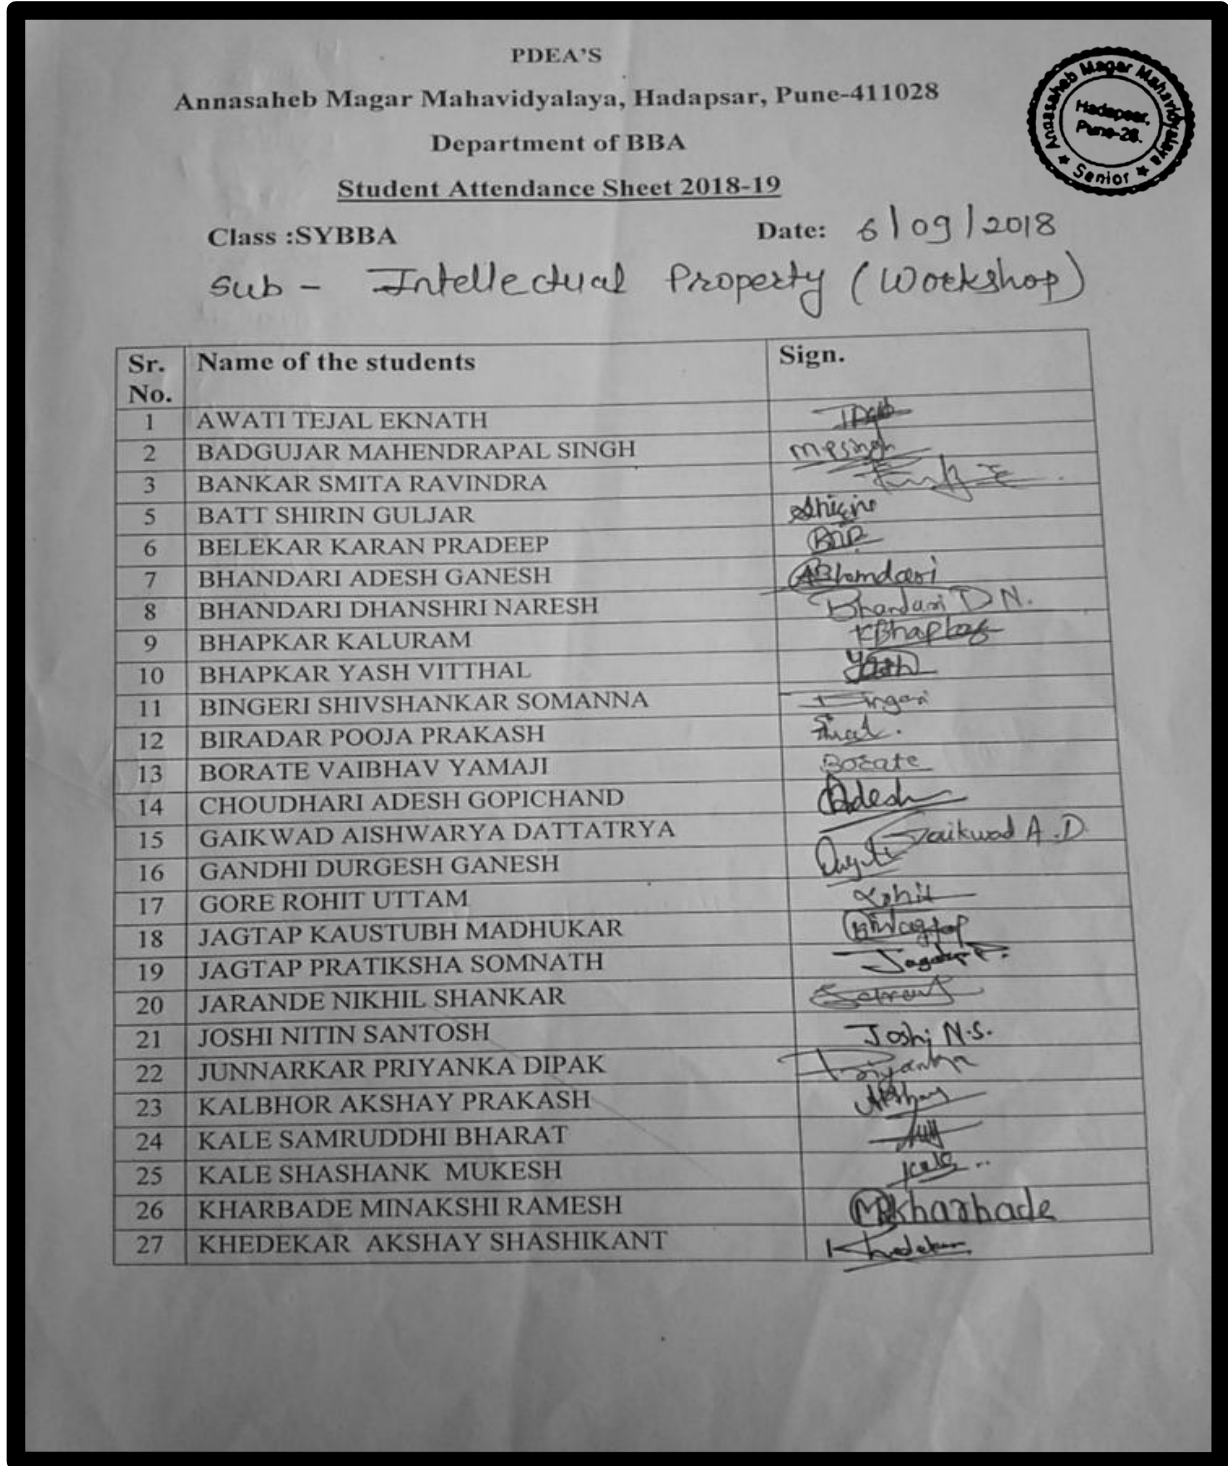 PDEA'S
Annasaheb Magar Mahavidyalaya, Hadapsar, Pune-411028
Department of BBA
Student Attendance Sheet 2018-19
Annasaheb Magar Mahavidyalaya
Hadapsar,
Pune-28.
★ Senior ★
Class :SYBBA Date: 6/09/2018
Sub - Intellectual Property (Workshop)
Sr. No. Name of the students Sign.
1 AWATI TEJAL EKNATH
2 BADGUJAR MAHENDRAPAL SINGH mpsingh
3 BANKAR SMITA RAVINDRA
5 BATT SHIRIN GULJAR
6 BELEKAR KARAN PRADEEP
7 BHANDARI ADESH GANESH ABhandari
8 BHANDARI DHANSHRI NARESH Bhandari D N.
9 BHAPKAR KALURAM KBhapkar
10 BHAPKAR YASH VITTHAL Yash
11 BINGERI SHIVSHANKAR SOMANNA
12 BIRADAR POOJA PRAKASH
13 BORATE VAIBHAV YAMAJI Borate
14 CHOUDHARI ADESH GOPICHAND Adesh
15 GAIKWAD AISHWARYA DATTATRYA Gaikwad A.D
16 GANDHI DURGESH GANESH
17 GORE ROHIT UTTAM Rohit
18 JAGTAP KAUSTUBH MADHUKAR
19 JAGTAP PRATIKSHA SOMNATH
20 JARANDE NIKHIL SHANKAR
21 JOSHI NITIN SANTOSH Joshi N.S.
22 JUNNARKAR PRIYANKA DIPAK Priyanka
23 KALBHOR AKSHAY PRAKASH Akshay
24 KALE SAMRUDDHI BHARAT
25 KALE SHASHANK MUKESH Kale
26 KHARBADE MINAKSHI RAMESH MRKharbade
27 KHEDEKAR AKSHAY SHASHIKANT Khedekar